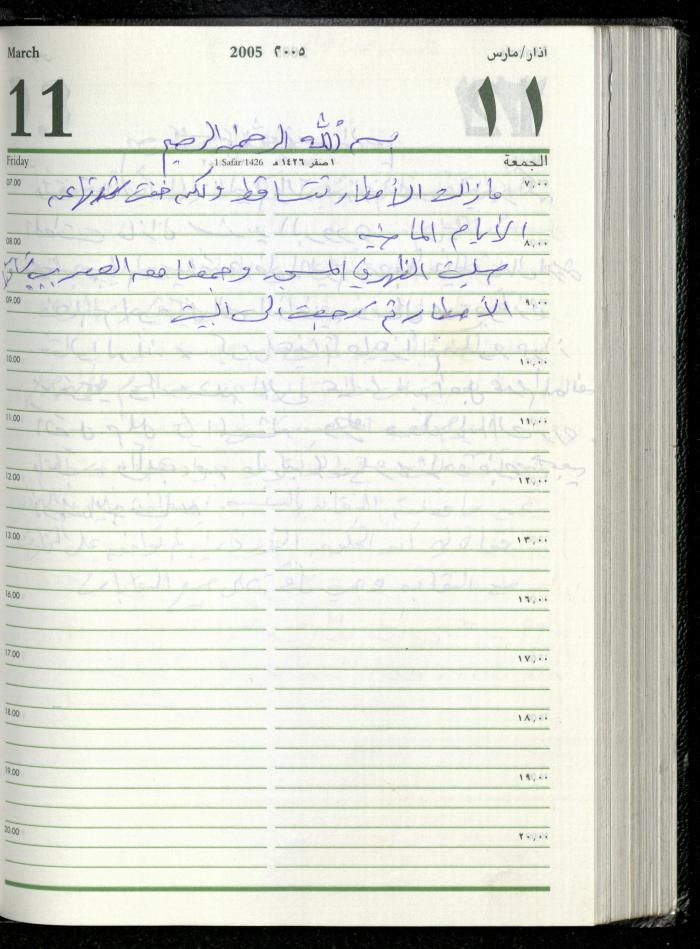 March 2005 ٢٠٠٥ اذار/مارس
11 ١١
بسم الله الرحمن الرحيم
Friday 1 Safar/1426 ١ صفر ١٤٢٦ هـ الجمعة
07.00 ٧,٠٠
مازالت الأمطار تتساقط ولكن خفت شدتها عن
الأيام الماضيه
08.00 ٨,٠٠
صليت الظهر في المسجد وجمعنا معه العصر بسبب
09.00 ٩,٠٠
الأمطار ثم رجعت الى البيت
10.00 ١٠,٠٠
11.00 ١١,٠٠
12.00 ١٢,٠٠
13.00 ١٣,٠٠
16.00 ١٦,٠٠
17.00 ١٧,٠٠
18.00 ١٨,٠٠
19.00 ١٩,٠٠
20.00 ٢٠,٠٠